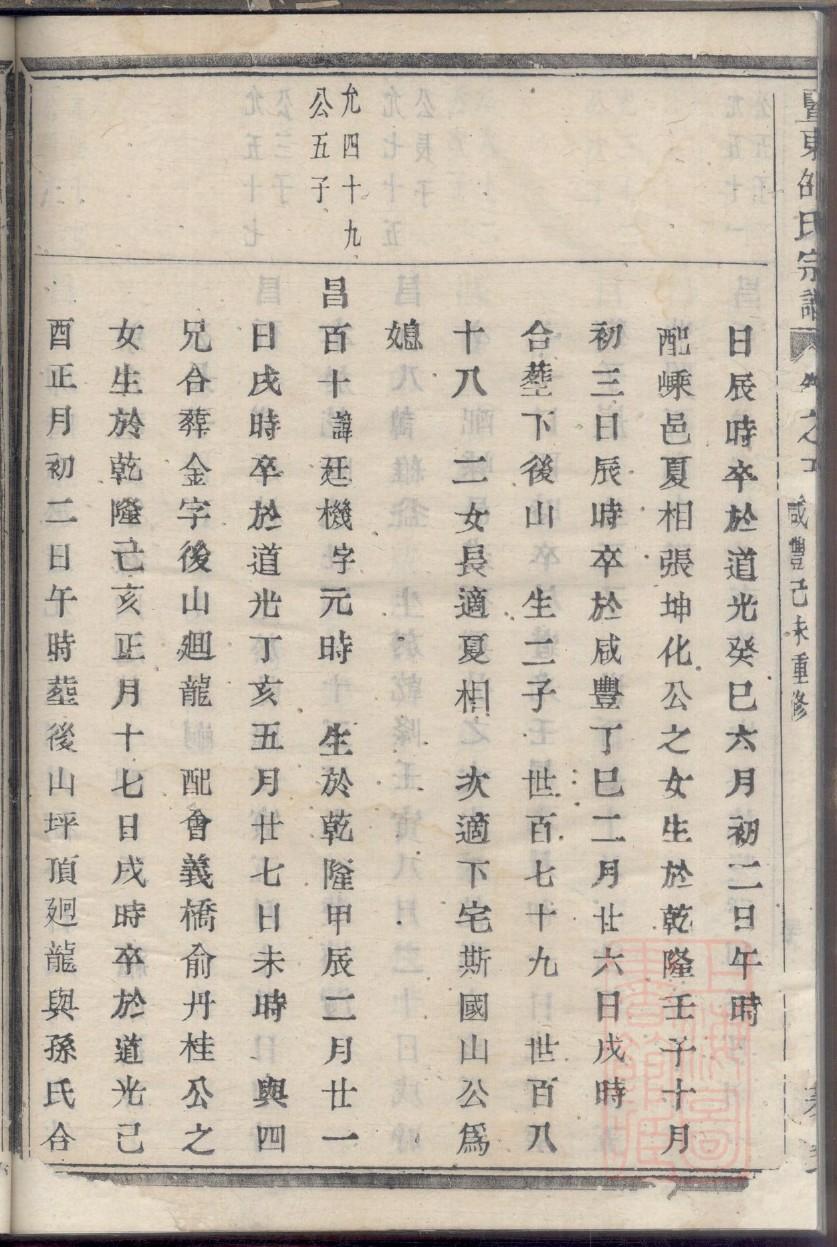 暨東邵氏宗譜
卷之
咸豐己未重修
日辰時卒於道光癸巳六月初二日午時
配嵊邑夏相張坤化公之女生於乾隆壬子十月
初三日辰時卒於咸豐丁巳二月廿六日戌時
合塟下後山 生二子 世百七十九 世百八
十八 二女長適夏相 次適下宅斯國山公為
媳
允四十九
公五子
昌百十諱廷機字元時 生於乾隆甲辰二月廿一
日戌時卒於道光丁亥五月廿七日未時 與四
兄合葬金字後山廻龍 配會義橋俞丹桂公之
女生於乾隆己亥正月十七日戌時卒於道光己
酉正月初二日午時塟後山坪頂廻龍與孫氏合